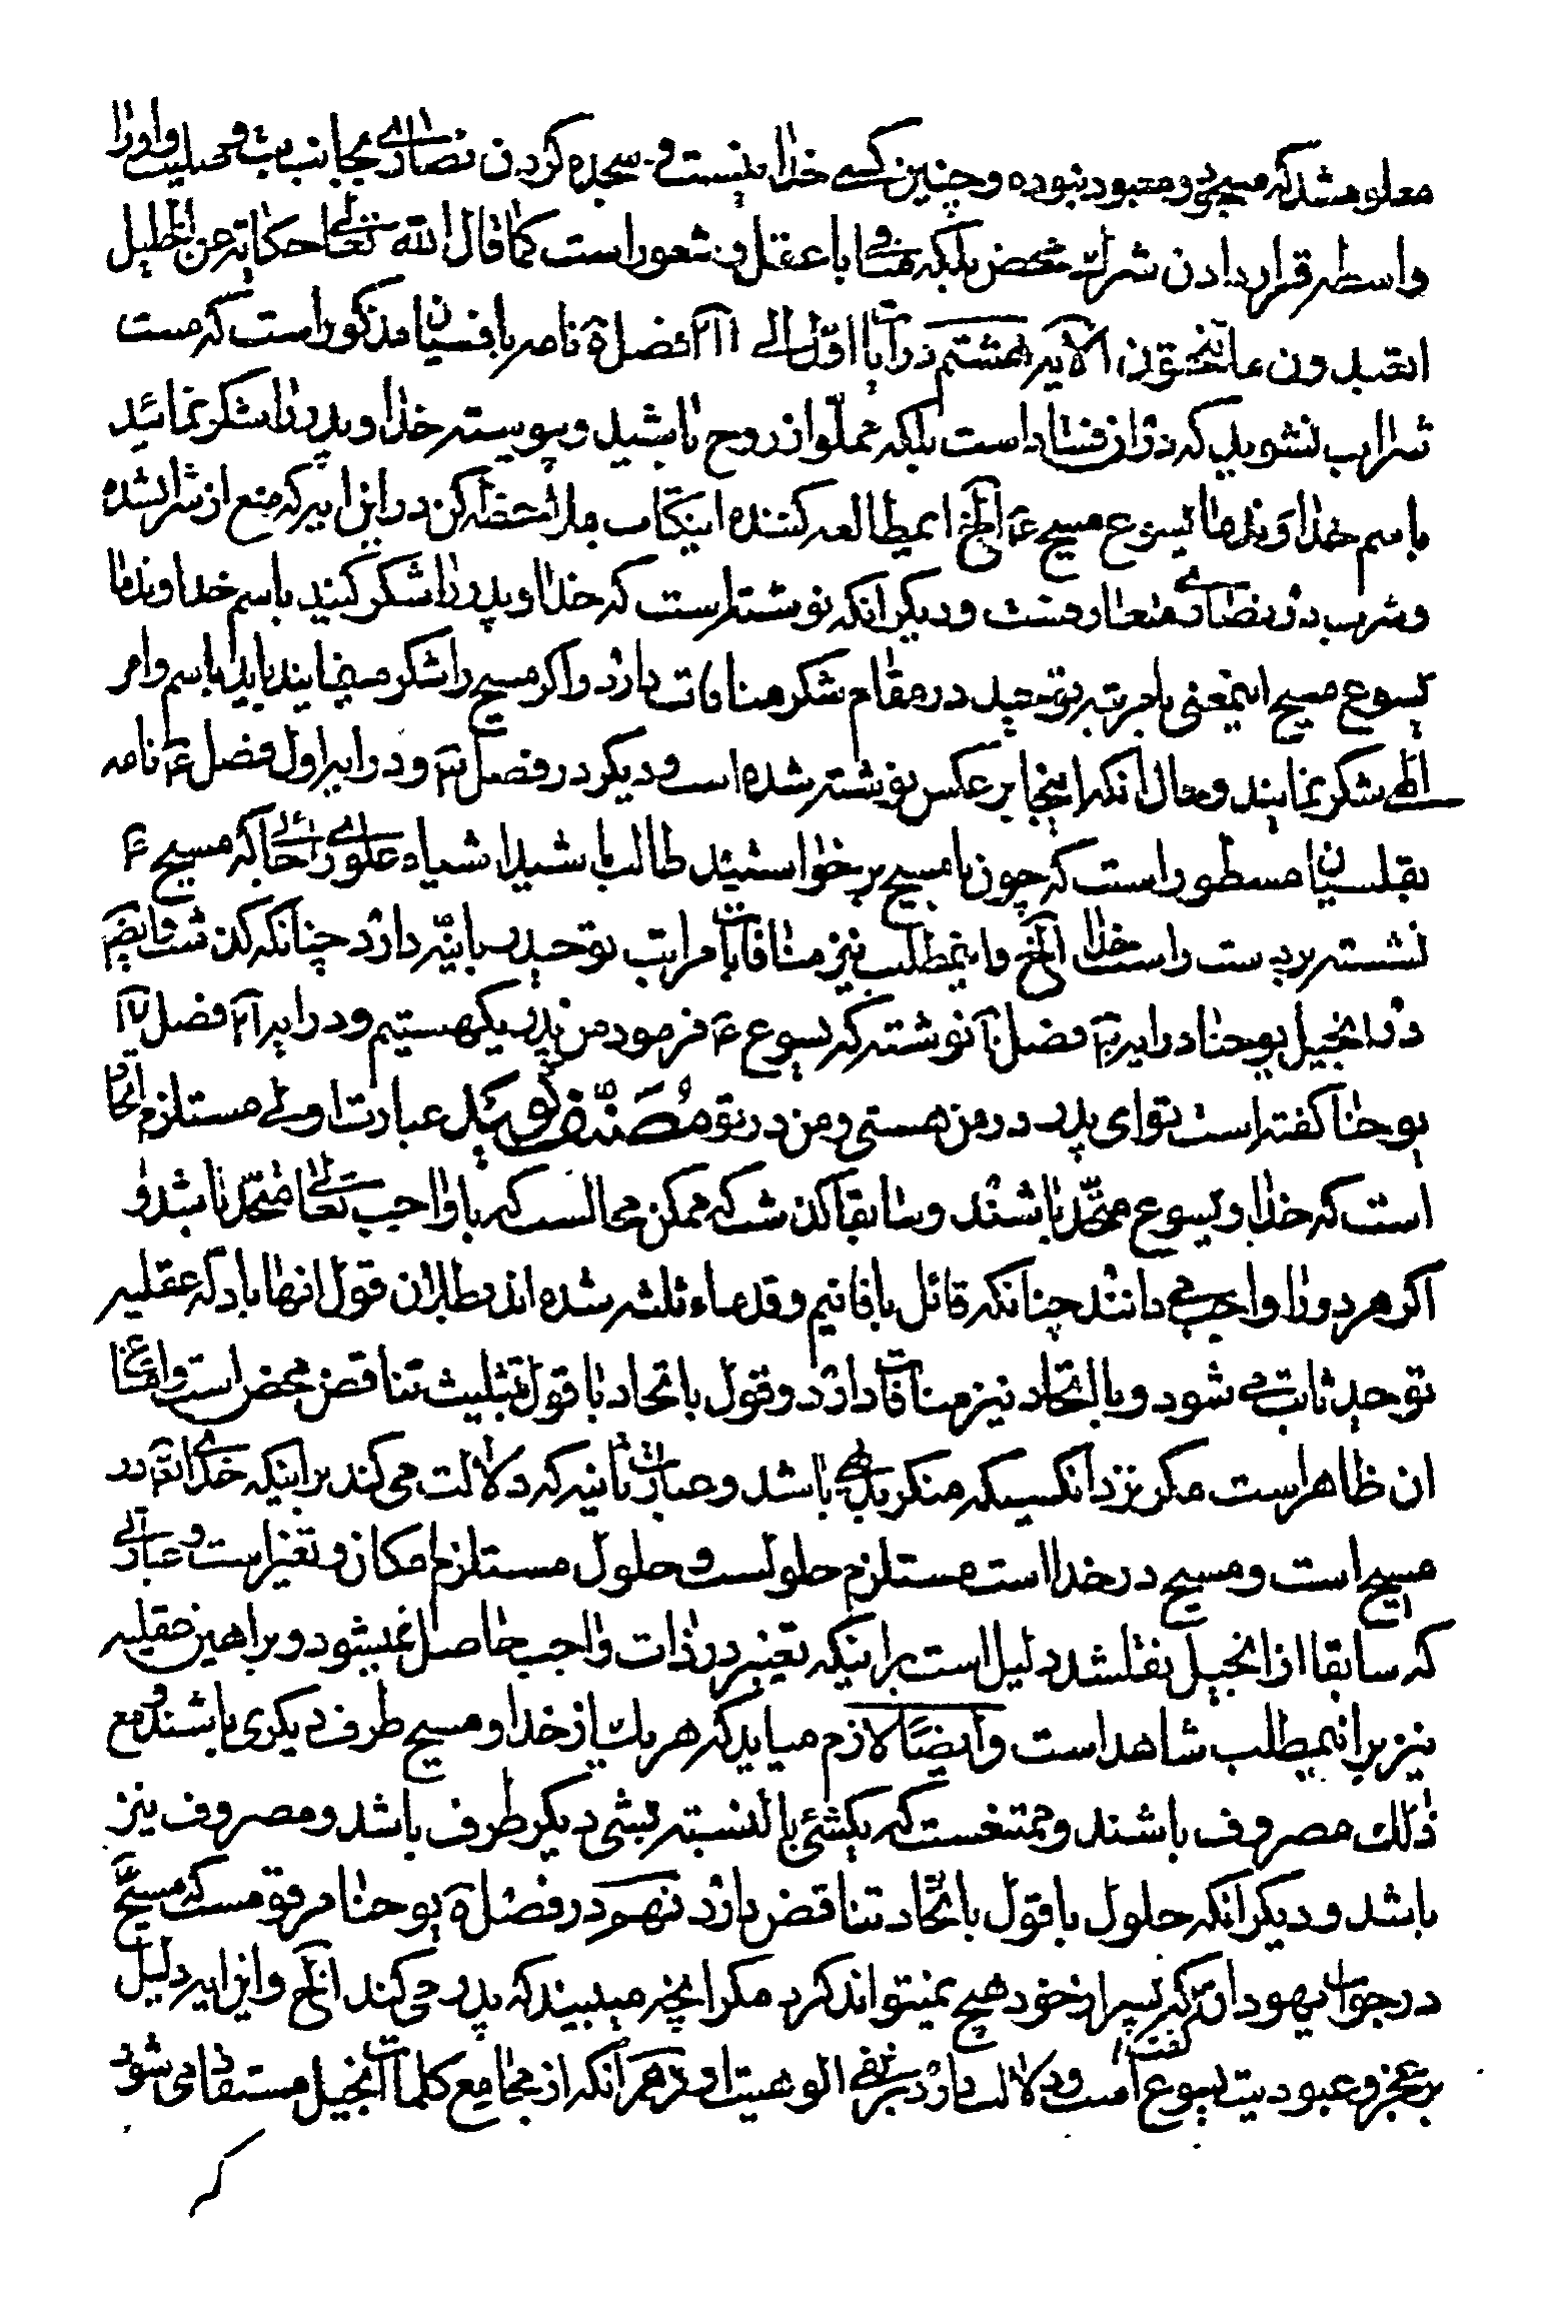 معلوم شد که مسیحی و معبود نبوده و چنین کسی خدا نیست و سجده کردن نصاری بجانب بت و صلیب و او را
واسطه قرار دادن شرک محض بلکه منافی با عقل و شعور است کما قال الله تعالی حکایة عن الخلیل
اتعبدون ما تنحتون الآیه هشتم در آیات اول الی فصل ۵ نامه بافسیان مذکور است که مست
شراب نشوید که در ان فساد است بلکه مملو از روح باشید و پیوسته خدا و پدر را شکر نمائید
باسم خداوند ما یسوع مسیح ع الخ ای مطالعه کننده اینکتاب ملاحظه کن در این ایه که منع از شرابشده
و شرب در نصاری متعارفست و دیگر انکه نوشته است که خدا و پدر را شکر کنید باسم خداوند ما
یسوع مسیح اینمعنی با مرتبه توحید در مقام شکر منافات دارد و اکر مسیح را شکر مینمایند باید باسم و امر
الهی شکر نمایند و حال انکه اینجا بر عکس نوشته شده است و دیکر در فصل و در ایه اول فصل نامه
بقلسیان مسطور است که چون با مسیح برخواستید طالب باشید اشیاء علوی را جائی که مسیح ع
نشسته بر دست راست خدا الخ و اینمطلب نیز منافات با مراتب توحید ربانیّه دارد چنانکه کذشت و ایضا
در انجیل یوحنا در ایه فصل نوشته که یسوع ع فرمود من و پدر یک هستیم و در ایه ۲۱ فصل ۱۷
یوحنا کفته است تو ای پدر در من هستی و من در تو مُصَنِّف کوید عبارت اولی مستلزم اتحاد
است که خدا و یسوع متّحد باشند و سابقا کذشت که ممکن محالست که با واجب تعالی متحد باشد و
اکر هر دو را واجب می دانند چنانکه قائل باقانیم و قدماء ثلثه شده اند بطلان قول انها بادله عقلیه
توحید ثابت می شود و با اتحاد نیز منافات دارد و قول باتحاد با قول بتثلیث تناقض محض است و امتناع
ان ظاهر است مکر نزد انکسیکه منکر بدیهی باشد و عبارت ثانیه که دلالت می کند بر اینکه خدای در
مسیح است و مسیح در خدا است مستلزم حلولست و حلول مستلزم امکان و تغیر است و عبارتی
که سابقا از انجیل نقلشد دلیل است بر اینکه تغییر در ذات واجب حاصل نمیشود و براهین عقلیه
نیز بر اینمطلب شاهد است وایضًا لازم میاید که هر یک از خدا و مسیح ظرف دیکری باشند و مع
ذلک مظروف باشند و ممتنعست که یکشئ بالنسبه بشی دیکر ظرف باشد و مظروف نیز
باشد و دیکر انکه حلول با قول باتحاد تناقض دارد نهم در فصل ۵ یوحنا مرقومست که مسیح ع
در جواب یهودان گفت که پسر از خود هیچ نمیتواند کرد مکر انچه میبیند که پدر می کند الخ و این ایه دلیل
بر عجز و عبودیت یسوع است و دلالت دارد بر نفی الوهیت او دهم انکه از مجامع کلمات انجیل مستفاد می شود
که